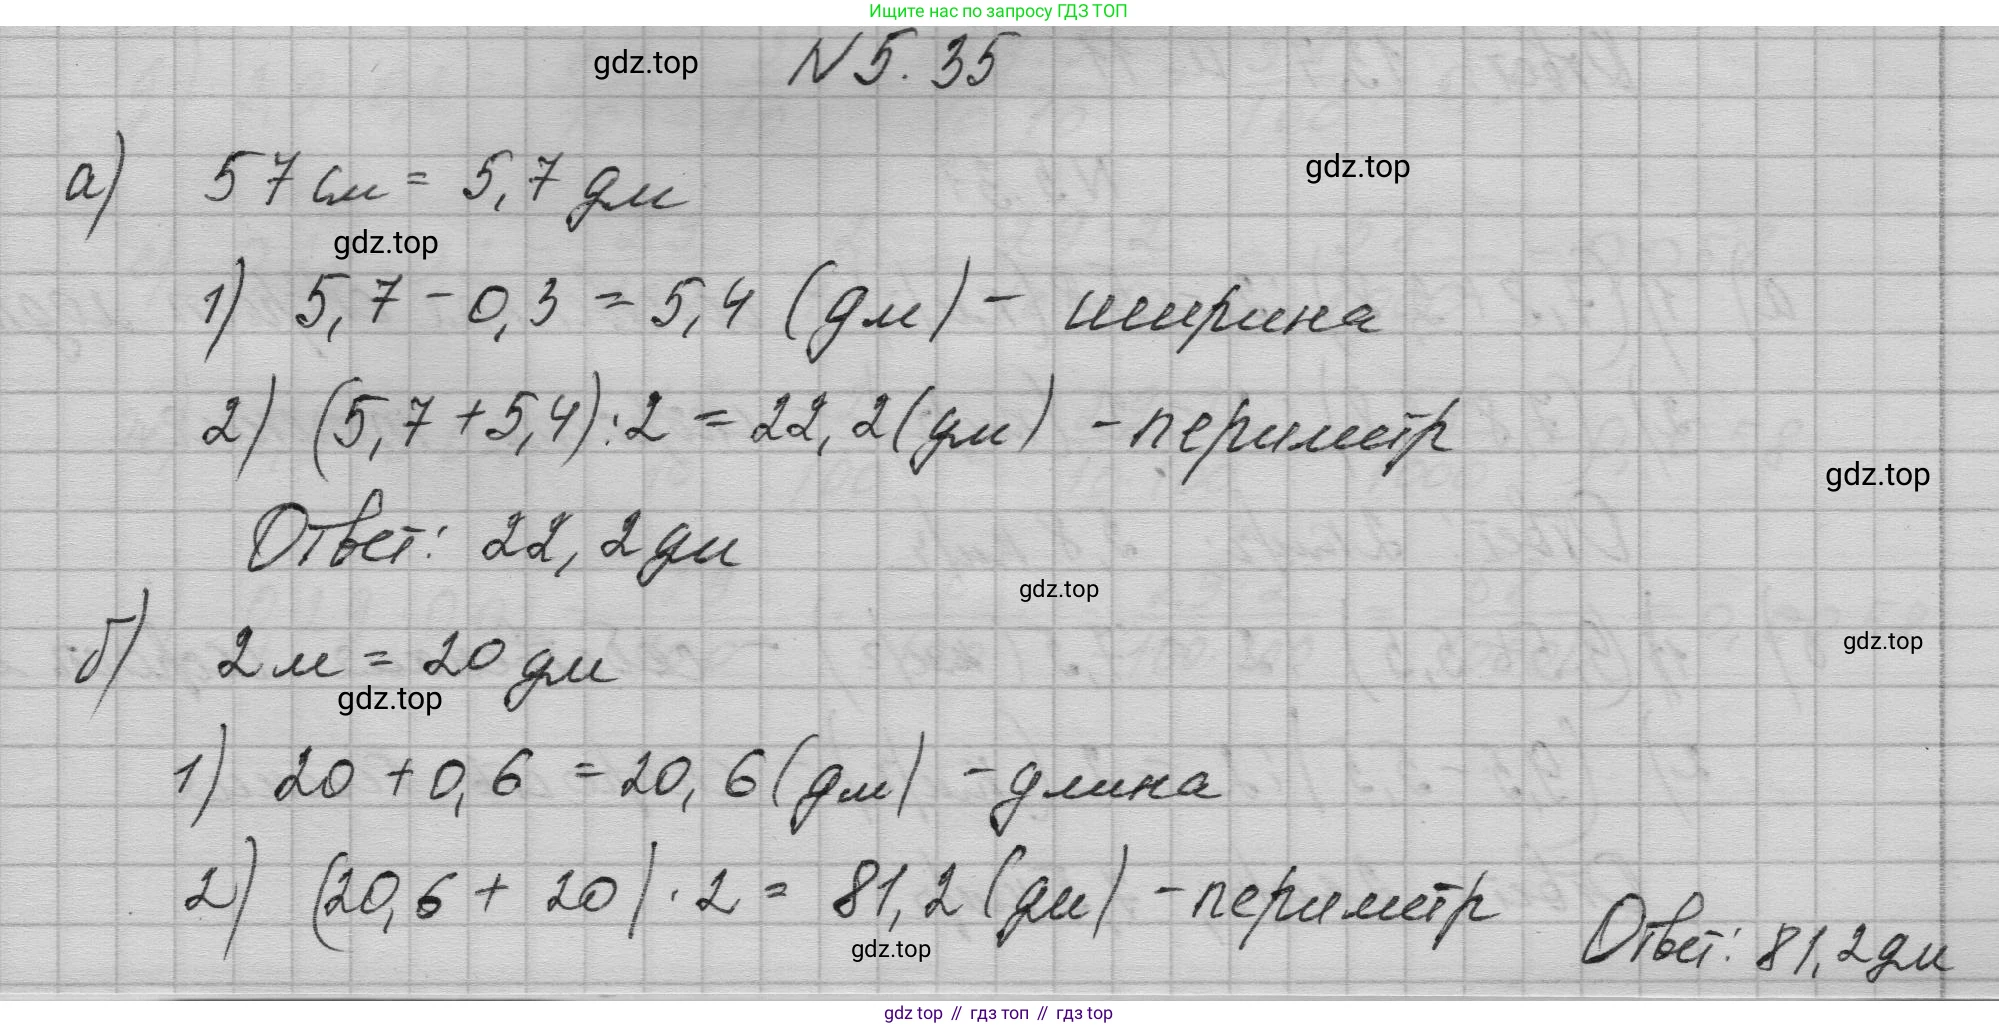 Ищите нас по запросу ГДЗ ТОП
gdz.top
N 5. 35
gdz.top
а) 57 см = 5,7 дм
gdz.top
1) 5,7 - 0,3 = 5,4 (дм) - ширина
2) (5,7 + 5,4) : 2 = 22,2 (дм) - периметр
gdz.top
Ответ: 22,2 дм
gdz.top
б) 2 м = 20 дм
gdz.top
gdz.top
1) 20 + 0,6 = 20,6 (дм) - длина
2) (20,6 + 20) · 2 = 81,2 (дм) - периметр
Ответ: 81,2 дм
gdz.top
gdz top // гдз топ // гдз top